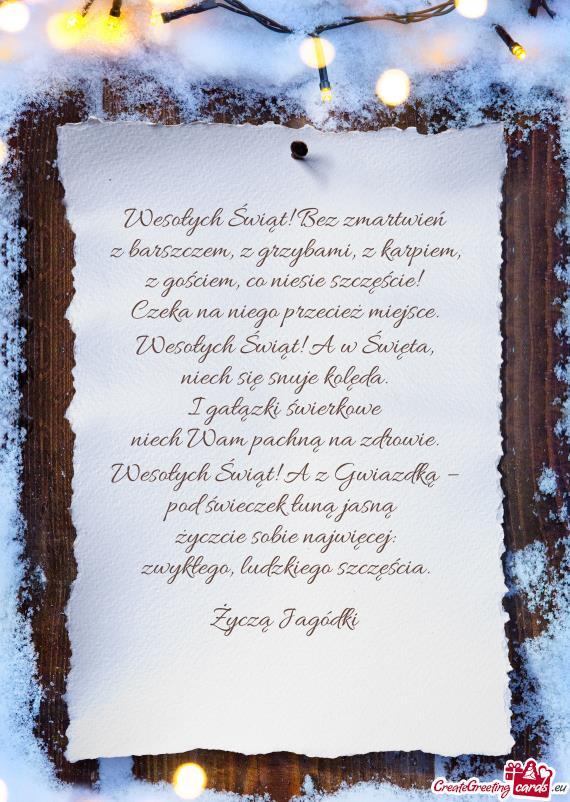 Wesołych Świąt! Bez zmartwień
z barszczem, z grzybami, z karpiem,
z gościem, co niesie szczęście!
Czeka na niego przecież miejsce.
Wesołych Świąt! A w Święta,
niech się snuje kolęda.
I gałązki świerkowe
niech Wam pachną na zdrowie.
Wesołych Świąt! A z Gwiazdką –
pod świeczek łuną jasną
życzcie sobie najwięcej:
zwykłego, ludzkiego szczęścia.
Życzą Jagódki
CreateGreetingcards.eu